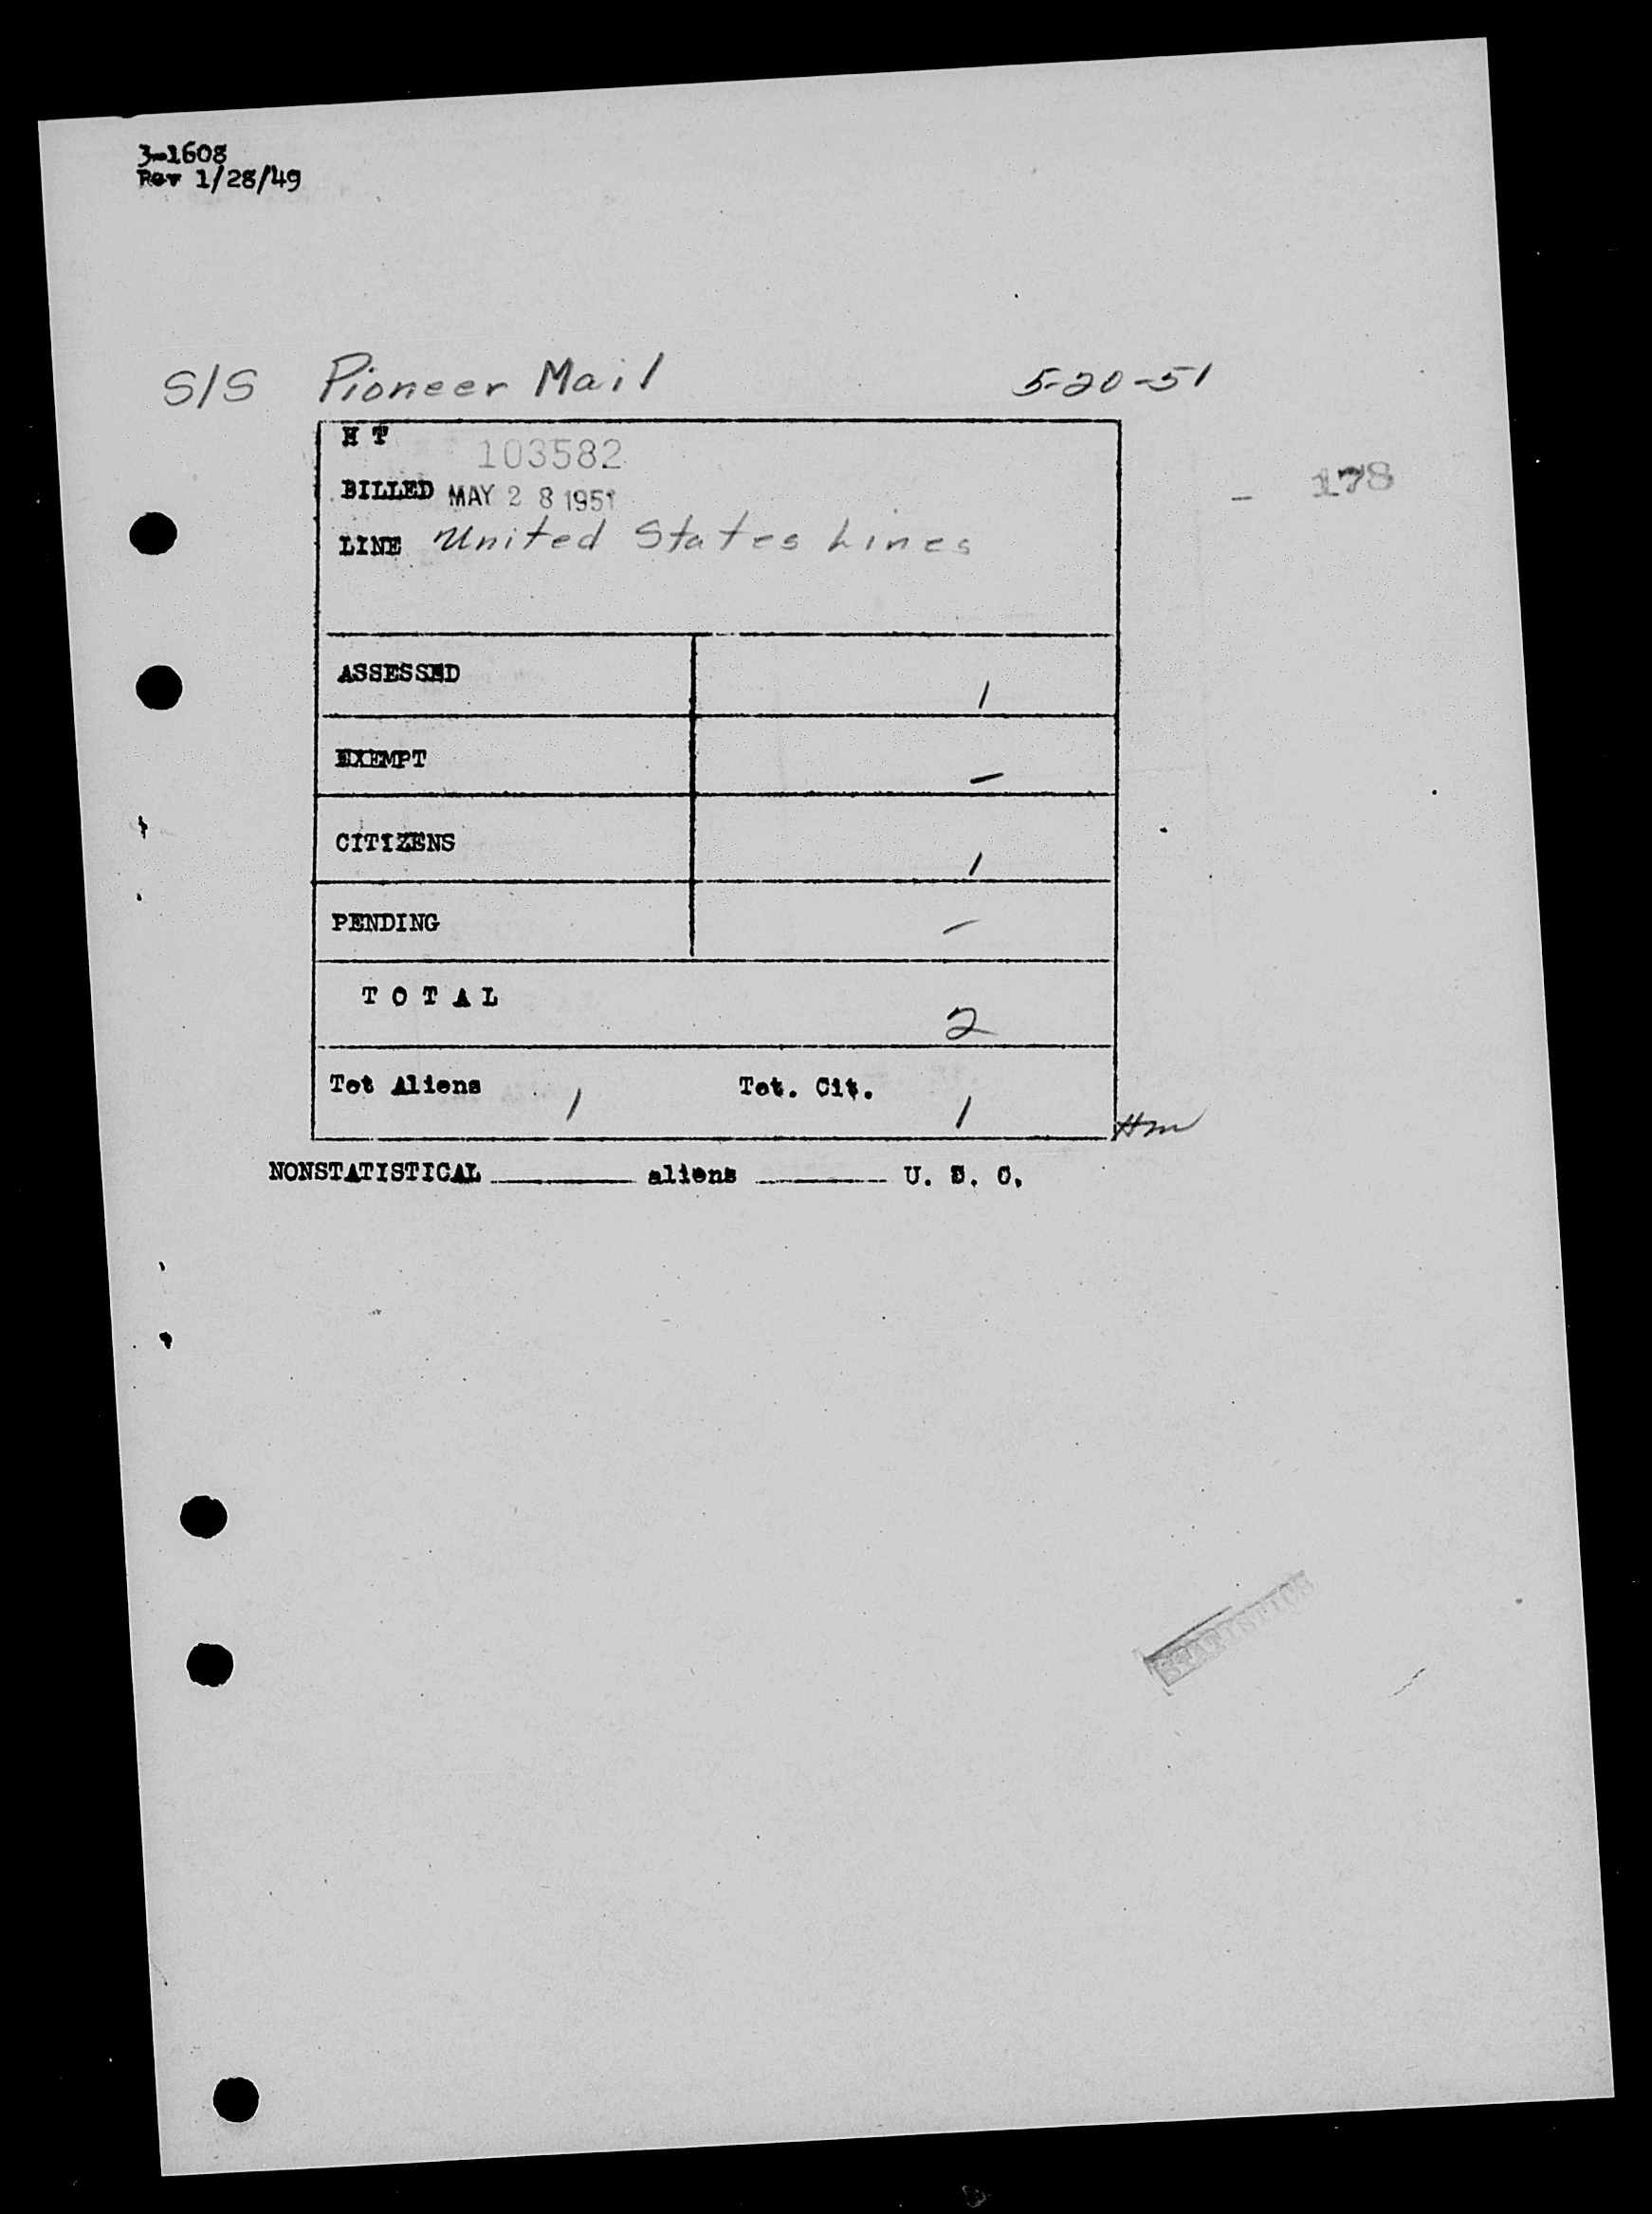 3-1608
Rev 1/28/49
S/S Pioneer Mail 5-20-51
H T 103582
BILLED MAY 28 1951
- 178
LINE United States Lines
ASSESSED 1
EXEMPT -
CITIZENS 1
PENDING -
T O T A L 2
Tot Aliens 1 Tot. Cit. 1
Hm
NONSTATISTICAL ______ aliens ______ U. S. C.
STATISTICS